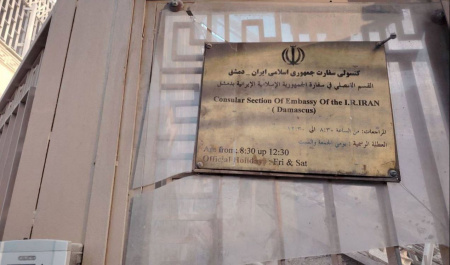 کنسولی سفارت جمهوری اسلامی ایران _ دمشق
القسم القنصلي في سفارة الجمهورية الإسلامية الإيرانية بدمشق
Consular Section Of Embassy Of the I.R.IRAN
( Damascus)
المراجعات: من الساعة ٨:٣٠ الى ١٢:٣٠
العطلة الرسمية: يومي الجمعة والسبت
from : 8:30 up 12:30
Official Holidays : Fri & Sat